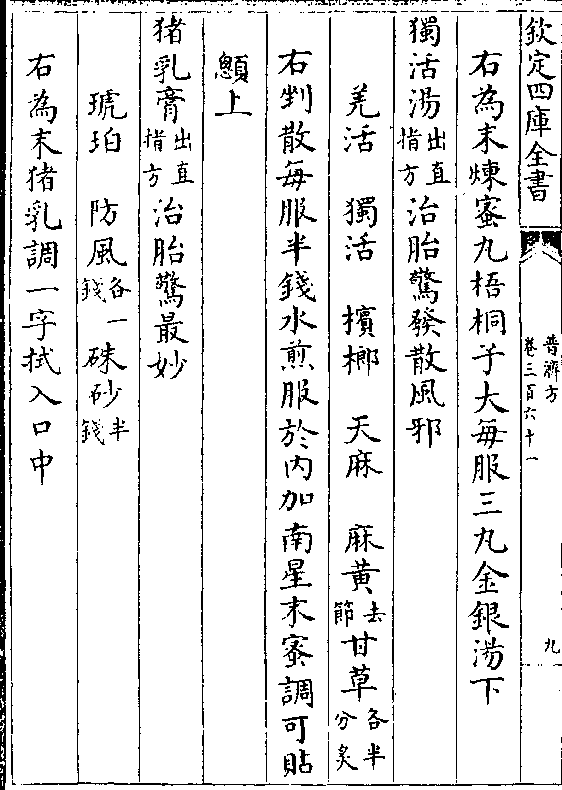 欽定四庫全書
普濟方
卷三百六十一
九
右為末煉蜜丸梧桐子大每服三丸金銀湯下
獨活湯出直指方治胎驚發散風邪
羗活 獨活 擯榔 天麻 麻黄去節甘草各半分炙
右剉散每服半錢水煎服於内加南星末蜜調可貼
顖上
猪乳膏出直指方治胎驚最妙
琥珀 防風各一錢硃砂半錢
右為末猪乳調一字拭入口中